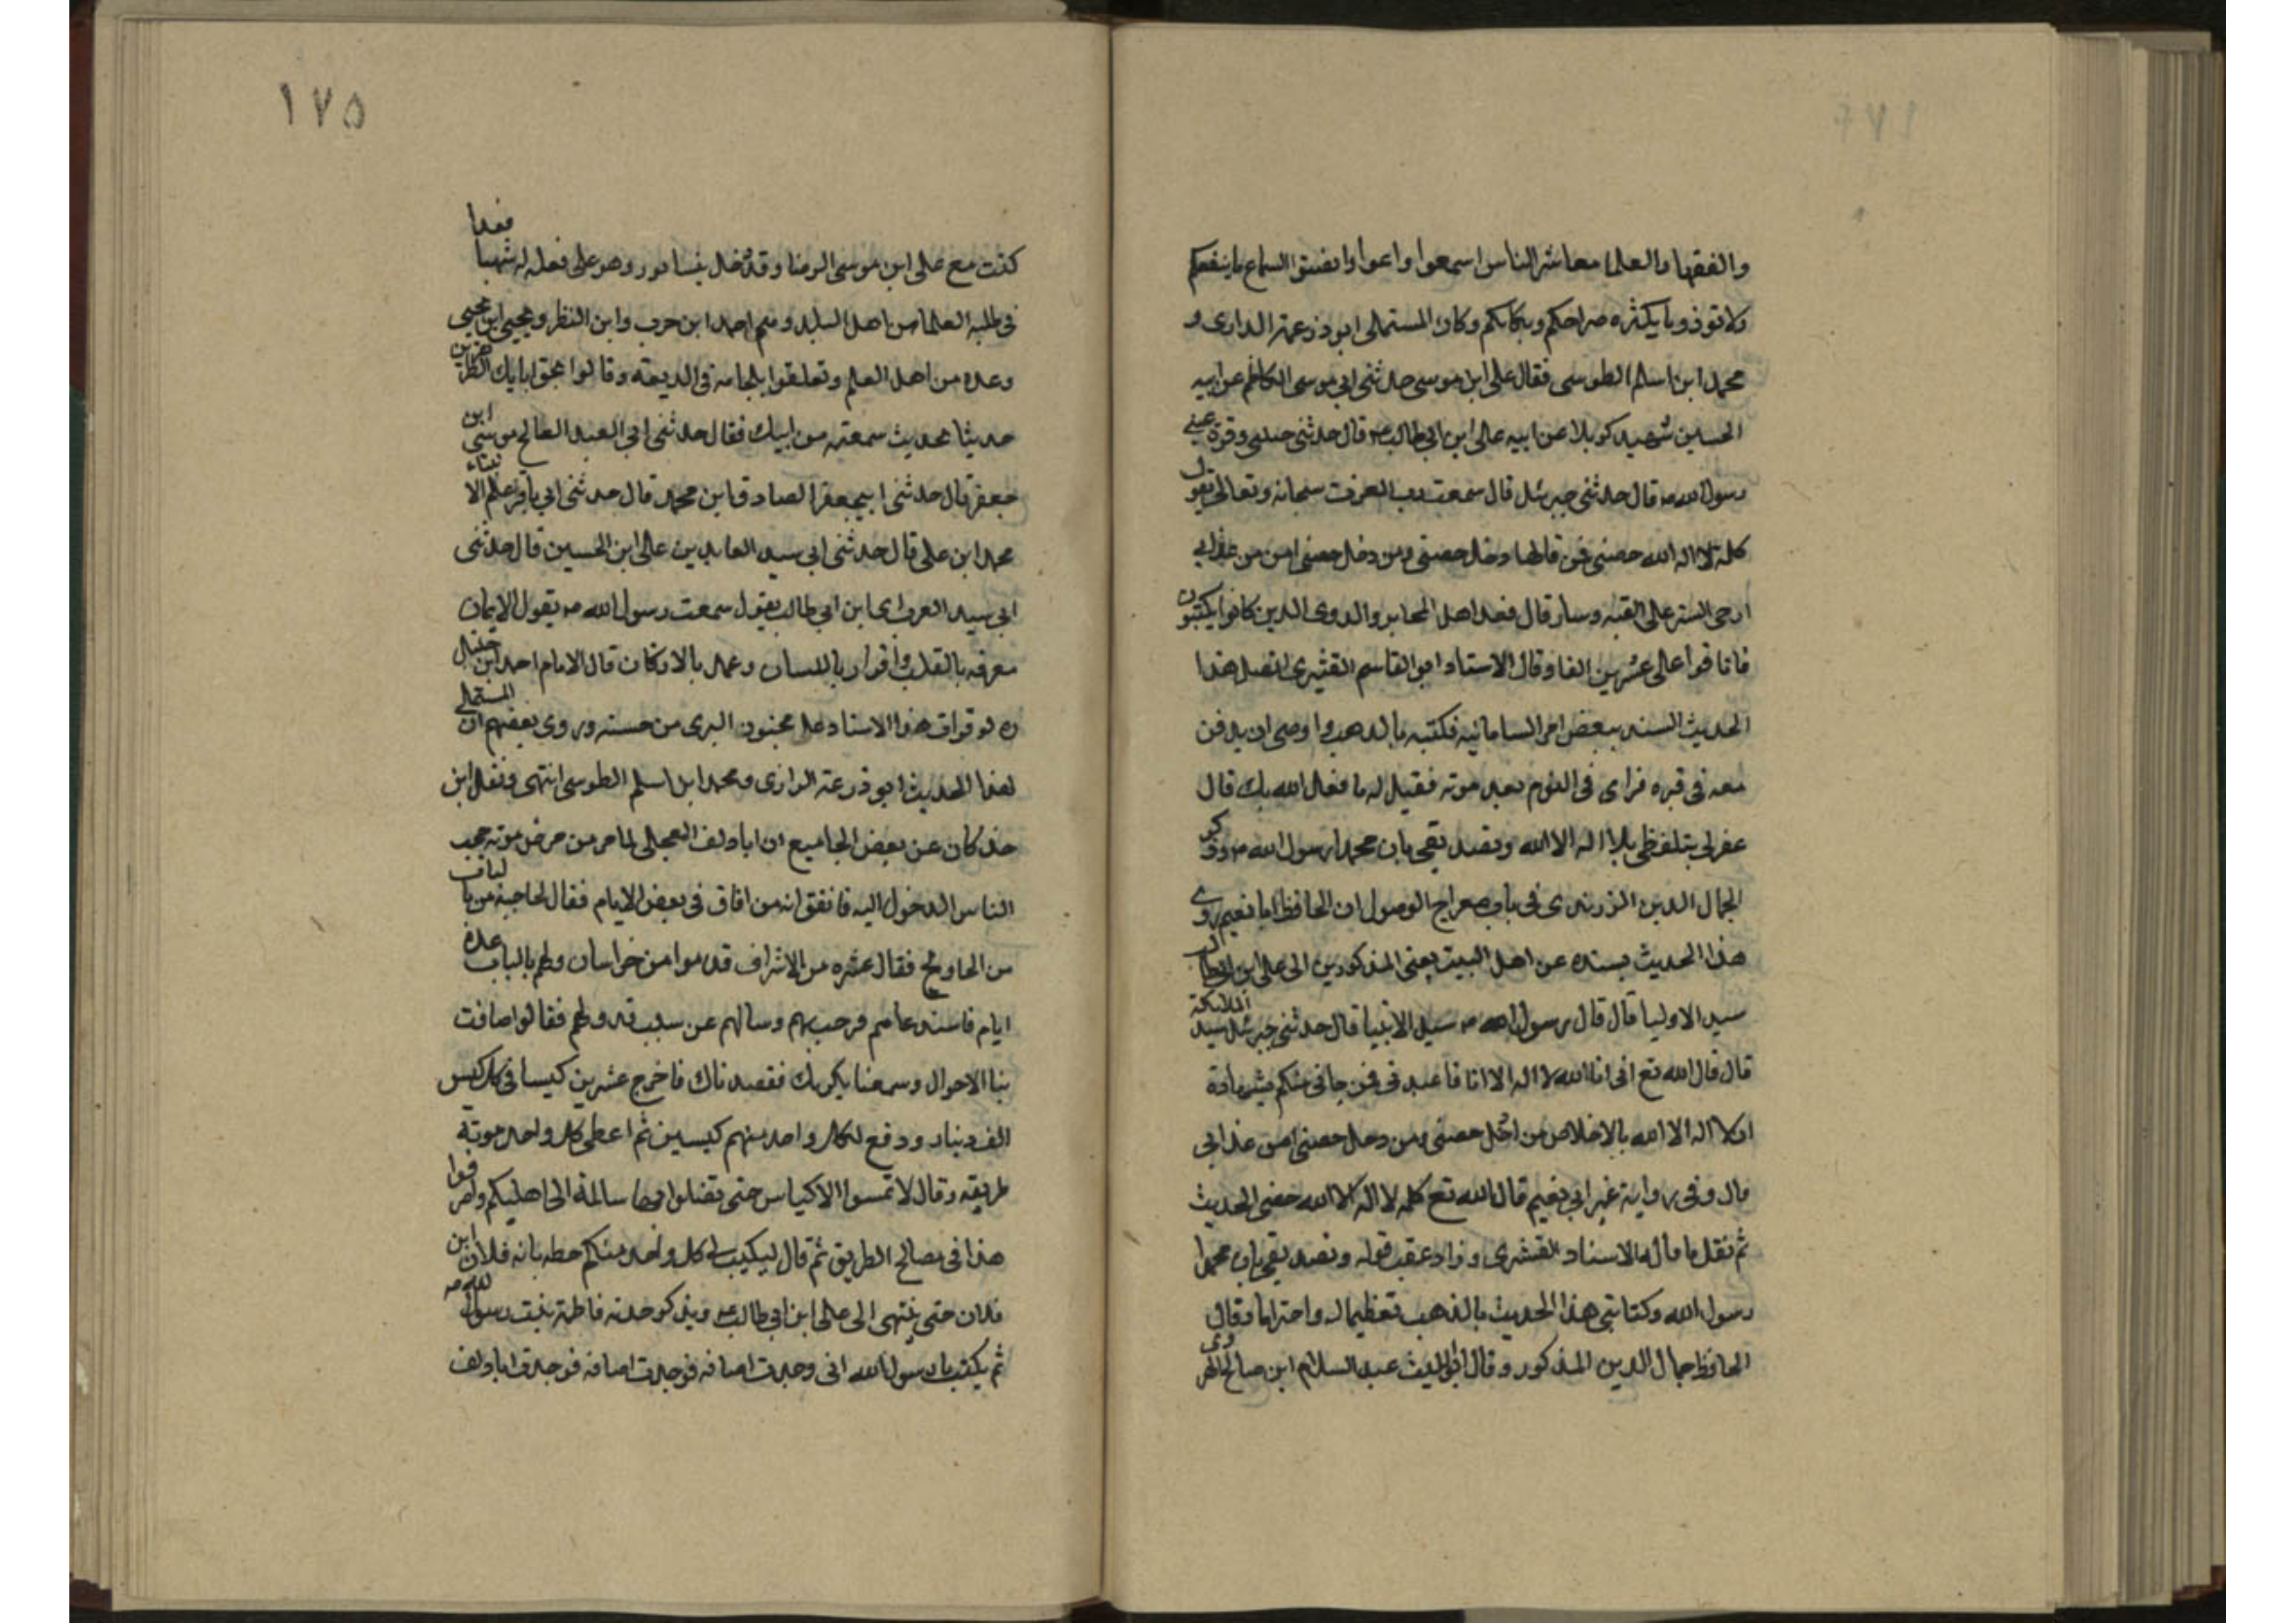 والفقها والعلما معاشر الناس اسمعوا واعوا وانصتوا لسماع ما ينفعكم
ولا توذونا بكثره صراحكم وبكائكم وكان المستملى ابو ذرعه الدارى و
محمد ابن اسلم الطوسى فقال على ابن موسى حدثنى ابى موسى الكاظم عن ابيه
الحسين شهيد كربلا عن ابيه على ابن ابى طالب ع قال حدثنى حبيبى وقرة عينى
رسول الله ص قال حدثنى جبرئيل قال سمعت رب العزت سبحانه وتعالى يقول
كلمة لا اله الا الله حصنى فمن قالها دخل حصنى ومن دخل حصنى امن من عذابى
ارخى الستر على القبه وسار قال فعد اهل المحابر والدوى الذين كانوا يكتبون
فانافوا على عشرين الفا وقال الاستاد ابو القاسم القشيرى اتصل هذا
الحديث السند ببعض امرا السامانيه فكتبه بالذهب واوصى ان يدفن
معه فى قبره فراى فى النوم بعد موته فقيل له ما فعل الله بك قال
غفر لى بتلفظى بلا اله الا الله وتصديقى بان محمدا رسول الله ص وذكر
الجمال الدين الزرندى فى باب معراج الوصول ان الحافظ ابا نعيم روى
هذا الحديث بسنده عن اهل البيت يعنى المذكورين الى على ابن ابيطالب
سيد الاوليا قال قال رسول الله ص سيد الانبيا قال حدثنى جبرئيل سيد الملائكة
قال قال الله تع انى انا الله لا اله الا انا فاعبدنى فمن جائى منكم بشهادة
ان لا اله الا الله بالاخلاص من ادخل حصنى ومن دخل حصنى امن عذابى
قال وفى رواية غير ابى نعيم قال الله تع كلمه لا اله الا الله حصنى الحديث
ثم نقل ما قاله الاستاد القشرى وزاد عقب قوله وتصديقى بان محمدا
رسول الله وكتابتى هذا الحديث بالذهب تعظيما له واحتراما وقال
الحافظ جمال الدين المذكور وقال ابو الليث عبد السلام ابن صالح الهروى
١٧٥
كنت مع على ابن موسى الرضا وقد دخل نيسابور وهو على بغله له شهبا فغدا
فى طلبه العلما من اهل البلد ومنهم احمد ابن حرب وابن النظر ويحيى ابن يحيى
وعده من اهل العلم وتعلقوا بلجامه فى المربعه وقالوا بحق ابايك الطاهرين
حدثنا بحديث سمعته من ابيك فقال حدثنى ابى العبد الصالح موسى ابن
جعفر قال حدثنى ابى جعفر الصادق ابن محمد قال حدثنى ابى باقر علم الانبياء
محمد ابن على قال حدثنى ابى سيد العابدين على ابن الحسين قال حدثنى
ابى سيد العرب اى ابن ابى طالب يقول سمعت رسول الله ص يقول الايمان
معرفه بالقلب واقرار باللسان وعمل بالاركان قال الامام احمد ابن حنبل
ره لو قرات هذا الاسناد على مجنون لبرى من حسنه وروى بعضهم ان المستملى
لهذا الحديث ابو ذرعة الرازى ومحمد ابن اسلم الطوسى انتهى ونقل ابن
خلكان عن بعض المجاميع ان ابا دلف العجلى لما مرض مرض موته حجب
الناس الدخول اليه فاتفق انه من افاق فى بعض الايام فقال لحاجبه من بالباب
من الحاويج فقال عشره من الاشراف قدموا من خراسان ولهم بالباب عدة
ايام فاستدعاهم فرحب بهم وسالهم عن سبب قدومهم فقالوا ضاقت
بنا الاحوال وسمعنا بكرمك فقصدناك فاخرج عشرين كيسا فى كل كيس
الف دينار ودفع لكل واحد منهم كيسين ثم اعطى كل واحد موتة
طريقه وقال لا تمسوا الاكياس حتى تصلوا بها سالمة الى اهليكم واصرفوا
هذا فى مصالح الطريق ثم قال ليكتب لى كل واحد منكم خطه بانه فلان ابن
فلان حتى ينتهى الى على ابن ابى طالب ع ويذكر جدته فاطمة بنت رسول الله ص
ثم يكتب يا رسول الله انى وجدت اضاقه فوجدت اضاقه فوجدت ابا دلف